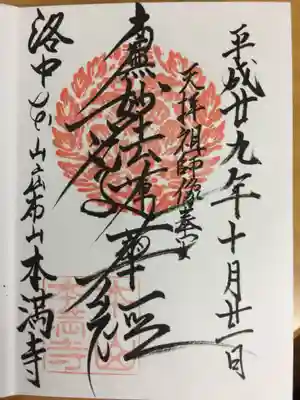 平成廿九年十月廿一日
天拝祖師像奉安
南無妙法蓮華経
洛中 本山広布山本満寺
本満寺